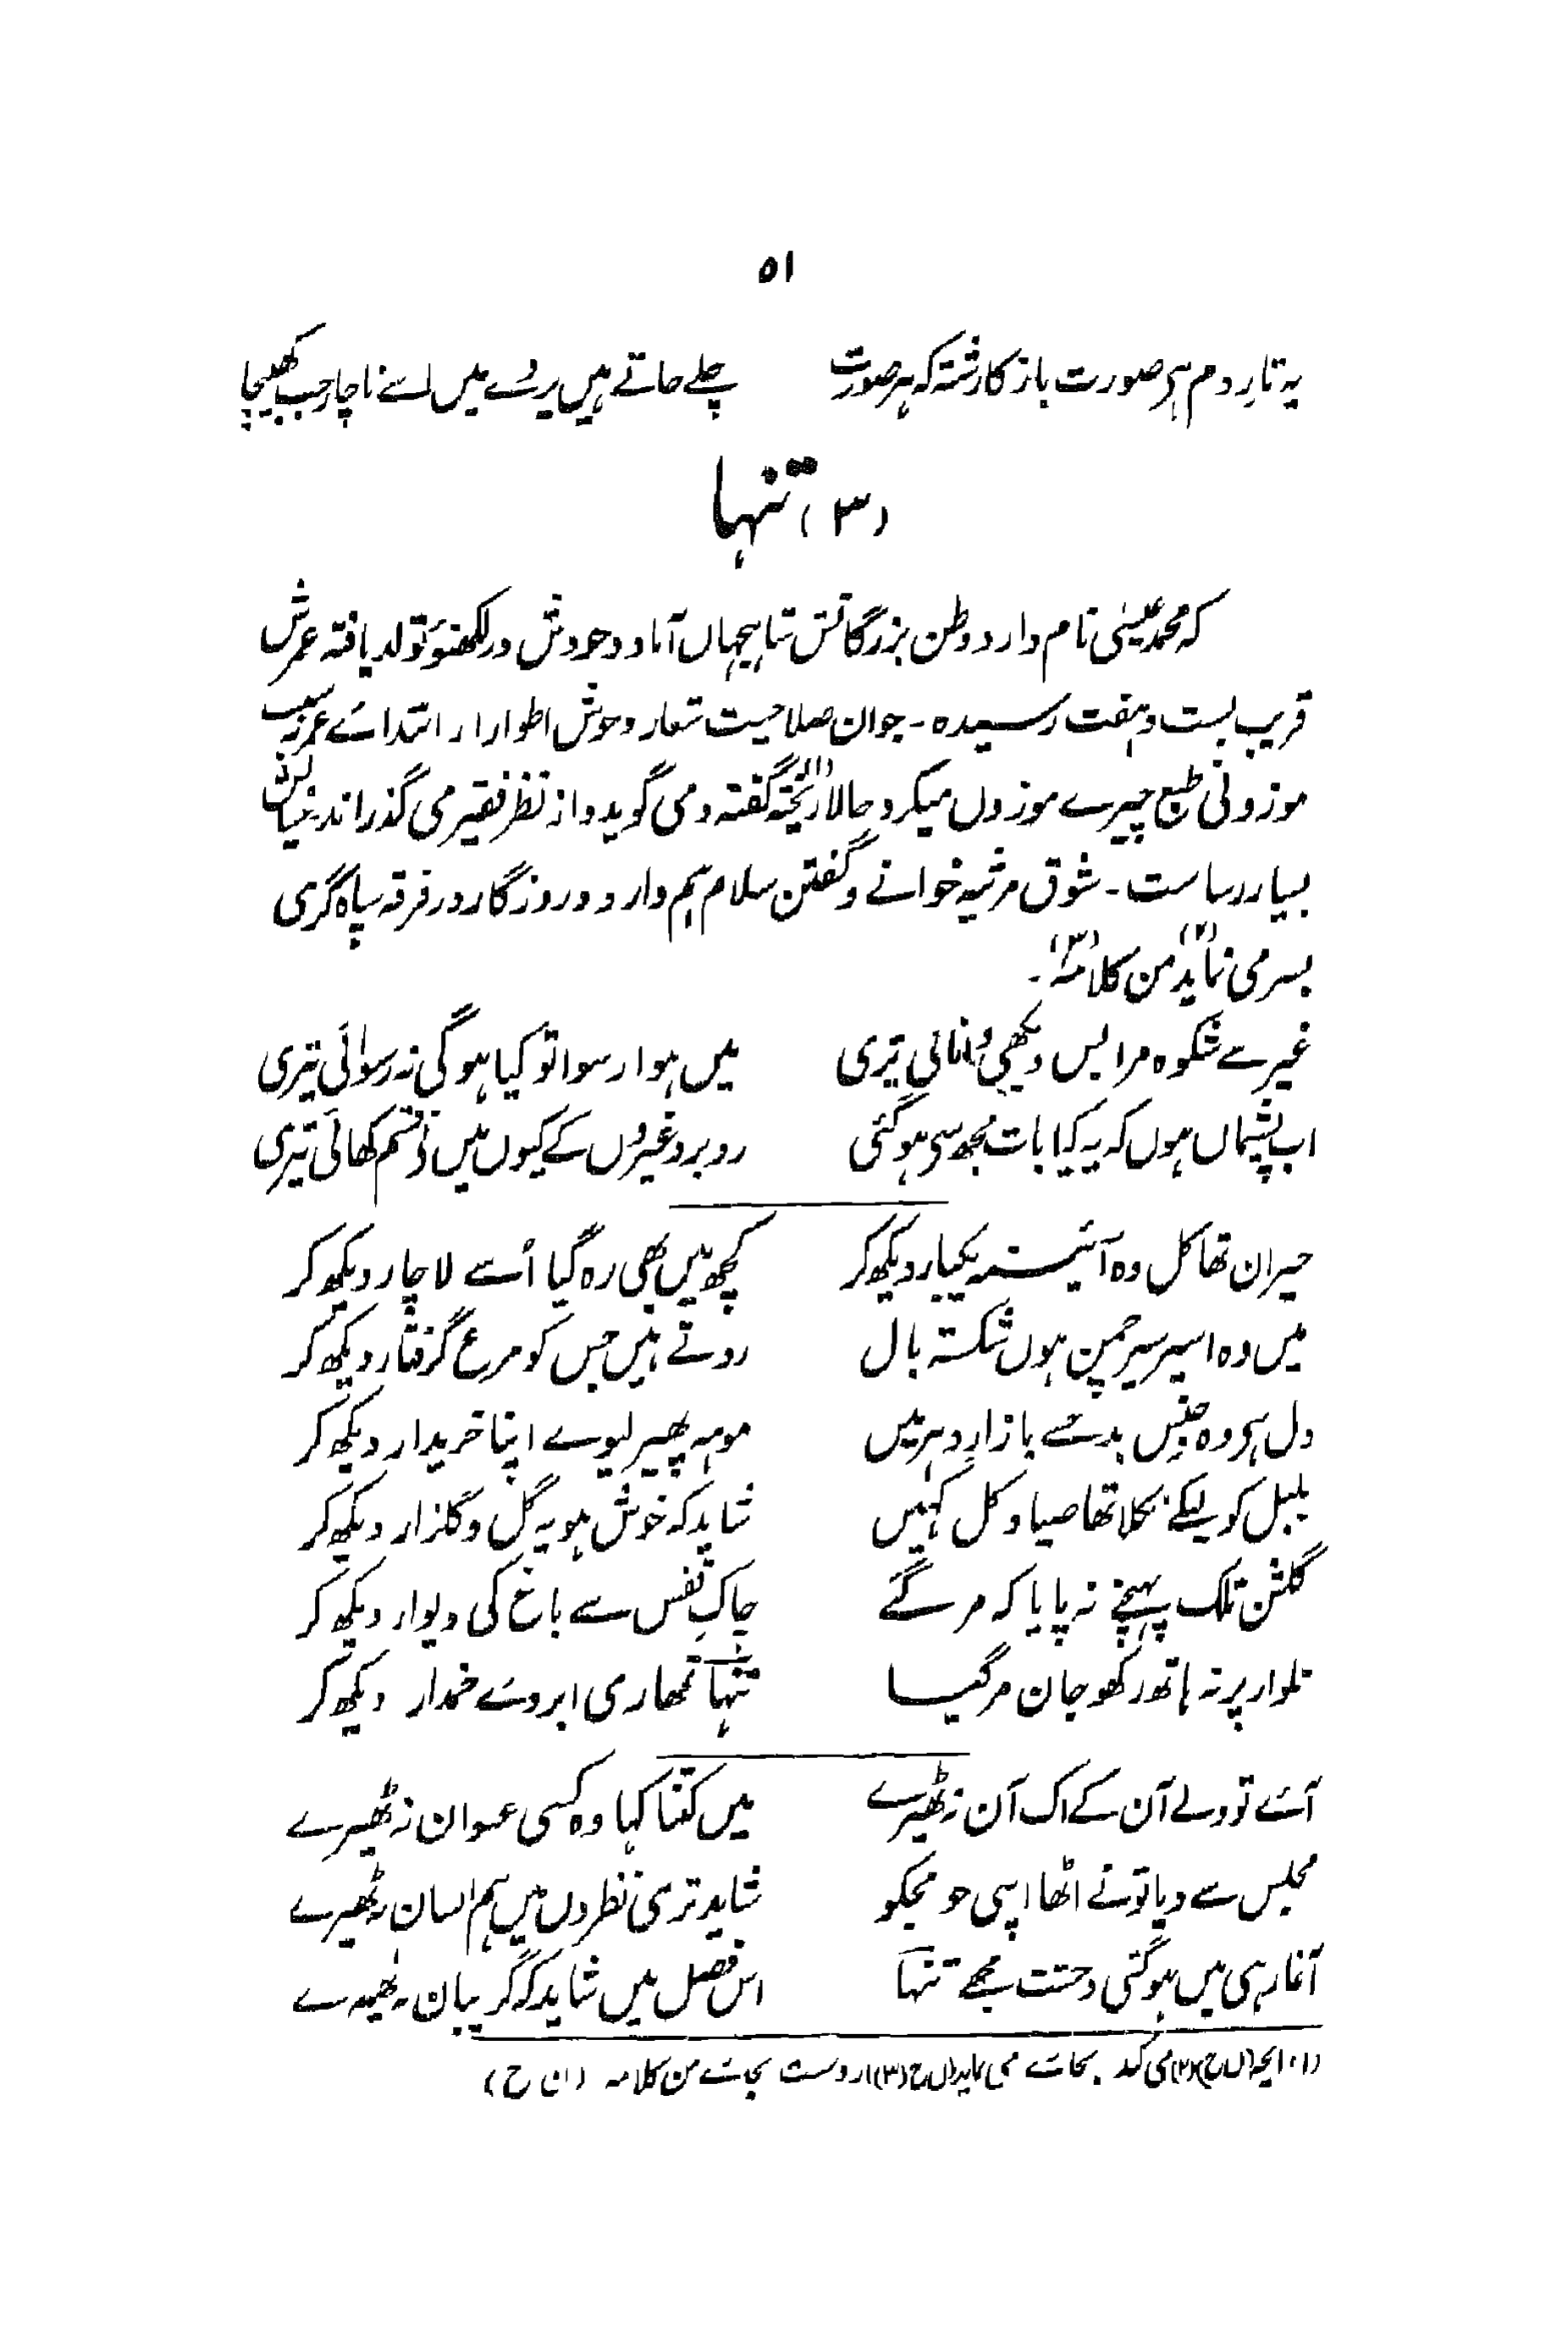 ۵۱
یہ تارِ دم ہی صورت باز کا رشتہ کہ ہر صورت چلے جاتے ہیں پردے میں اسے ناچار جب کھینچا
(۳) تنہا
کہ محمد عیسیٰ نام دارد وطن بزرگانش شاہجہاں آباد و خودش در لکھنؤ تولد یافتہ عمرش
قریب بست و ہفت رسیدہ ۔ جوان صلاحیت شعار و خوش اطوار از ابتدائے عمر بہ سبب
موزونی طبع چیزے موزوں میکرد حالا ریختہ (۱) گفتہ و می گوید و از نظر فقیر می گذراند بنیانش
بسیار رسا ست ۔ شوق مرثیہ خوانے و گفتن سلام ہم دارد و روزگار در فرقہ سپاہ گری
بسر می نماید (۲) من کلامہٗ (۳) ۔
غیر سے شکوہ مرا بس دیکھی دانائی تیری میں ہوا رسوا تو کیا ہوگی نہ رسوائی تیری
اب پشیماں ہوں کہ یہ کیا بات مجھ سی ہوگئی روبرو غیروں کے کیوں میں نے قسم کھائی تیری
حیران تھا کل وہ آئینہ یکبار دیکھ کر کچھ میں بھی رہ گیا اُسے لاچار دیکھ کر
میں وہ اسیر سیر چمن ہوں شکستہ بال روتے ہیں جس کو مرغ گرفتار دیکھ کر
دل ہی وہ جنسِ بد سے بازارِ دہر میں مونہہ پھیر لیوے اپنا خریدار دیکھ کر
بلبل کو لیکے نکلا تھا صیاد کل کہیں شاید کہ خوش ہو یہ گل و گلزار دیکھ کر
گلشن تلک پہنچنے نہ پایا کہ مر گئے چاکِ قفس سے باغ کی دیوار دیکھ کر
تلوار پر نہ ہاتھ رکھو جان مر گیا تنہا تمھاری ابروئے خمدار دیکھ کر
آئے تو ولے آن کے اک آن نہ ٹھیرے میں کتنا کہا وہ کسی عنوان نہ ٹھیرے
مجلس سے دیا تونے اٹھا اپنی جو مجکو شاید تری نظروں میں ہم انسان نہ ٹھیرے
آغاز ہی میں ہوگئی وحشت مجھے تنہا اس فصل میں شاید کہ گریبان نہ ٹھیرے
(۱) (ل ح) (۲) می کند بجائے می نماید (ل ح) (۳) از وست بجائے من کلامہ (ن ح)